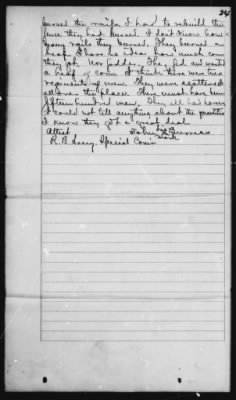 24
burned the rails I had to rebuild the
fence they had burned. I dont know how
many rails they burned. They burned a
heap. I have no idea how much corn
they got nor fodder. They fed and wasted
a heap of corn. I think there were two
regiments of men. They were scattered
all over the place. There must have been
fifteen hundred men. They all had horses
I could not tell anything about the quantity
I know they got a great deal.
Attest
mark
R. B. Special Comr